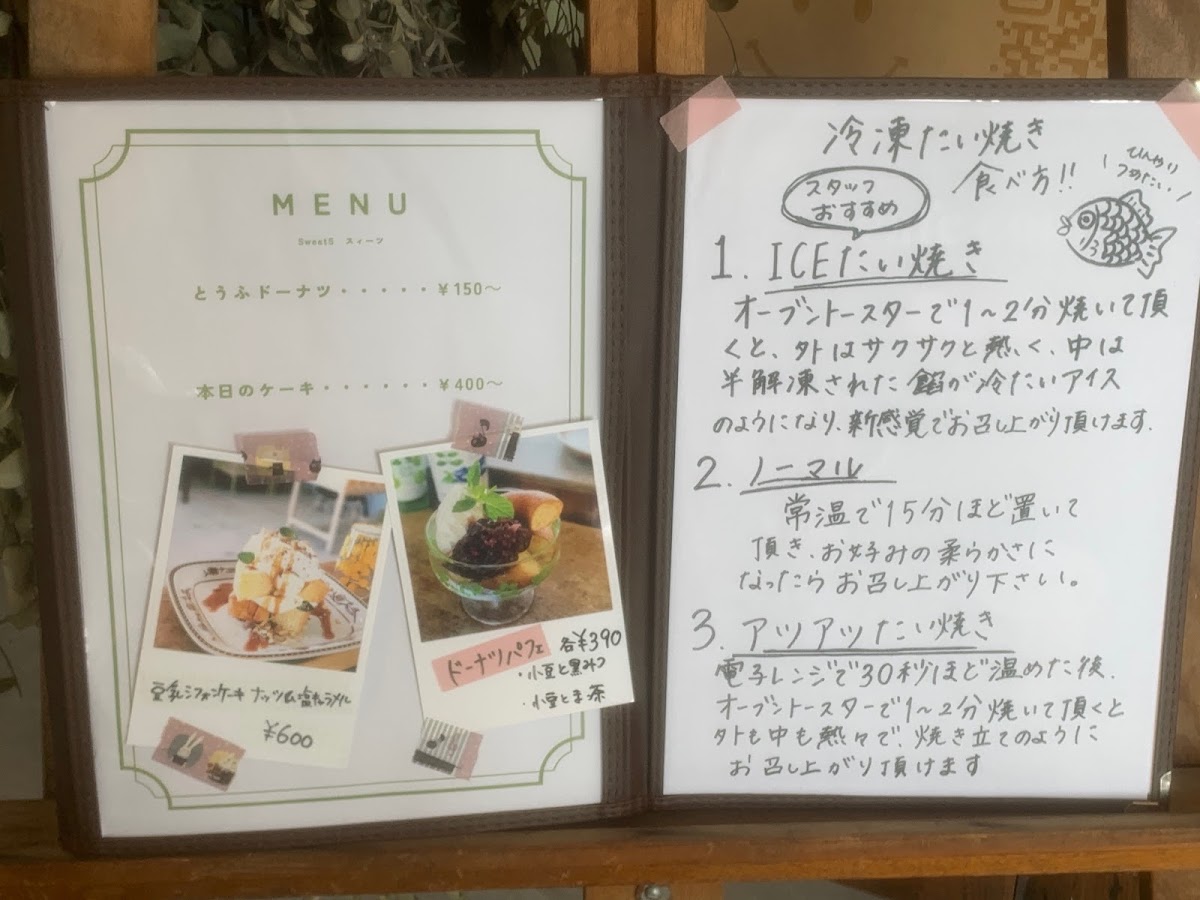 MENU
Sweets スィーツ
とうふドーナツ・・・・・¥150～
本日のケーキ・・・・・・¥400～
豆乳シフォンケーキ ナッツ&塩キャラメル
¥600
ドーナツパフェ 各¥390
・小豆と黒みつ
・小豆とま茶
冷凍たい焼き
食べ方!!
ひんやり
つめたい
スタッフ
おすすめ
1. ICEたい焼き
オーブントースターで1～2分焼いて頂
くと、外はサクサクと熱く、中は
半解凍された餡が冷たいアイス
のようになり、新感覚でお召し上がり頂けます.
2. ノーマル
常温で15分ほど置いて
頂き、お好みの柔らかさに
なったらお召し上がり下さい。
3. アツアツたい焼き
電子レンジで30秒ほど温めた後、
オーブントースターで1～2分焼いて頂くと
外も中も熱々で、焼き立てのように
お召し上がり頂けます